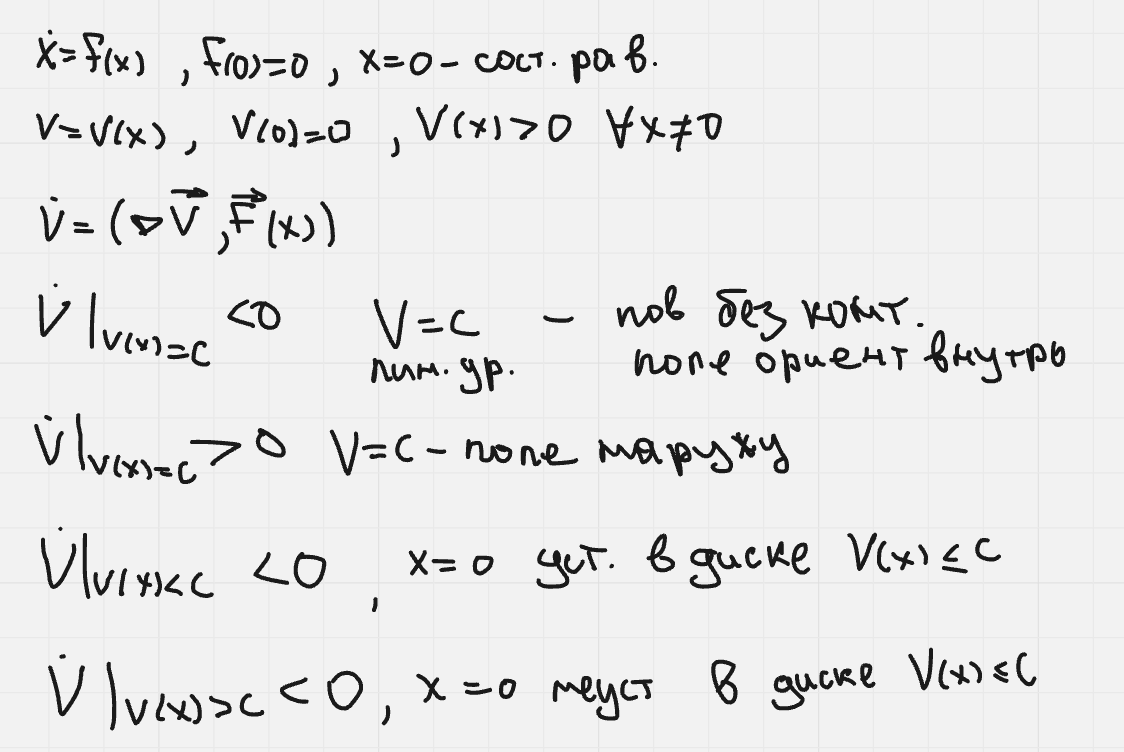 ẋ=f(x) , f(0)=0 , x=0 – сост. рав.
V=V(x) , V(0)=0 , V(x)>0 ∀x≠0
V̇ = (∇V⃗ , F⃗(x))
V̇|V(x)=C <0 V=C – пов без конт.
лин. ур. поле ориент внутрь
V̇|V(x)=C >0 V=C – поле наружу
V̇|V(x)<C <0 , x=0 уст. в диске V(x)≤C
V̇|V(x)>C <0 , x=0 неуст в диске V(x)≤C